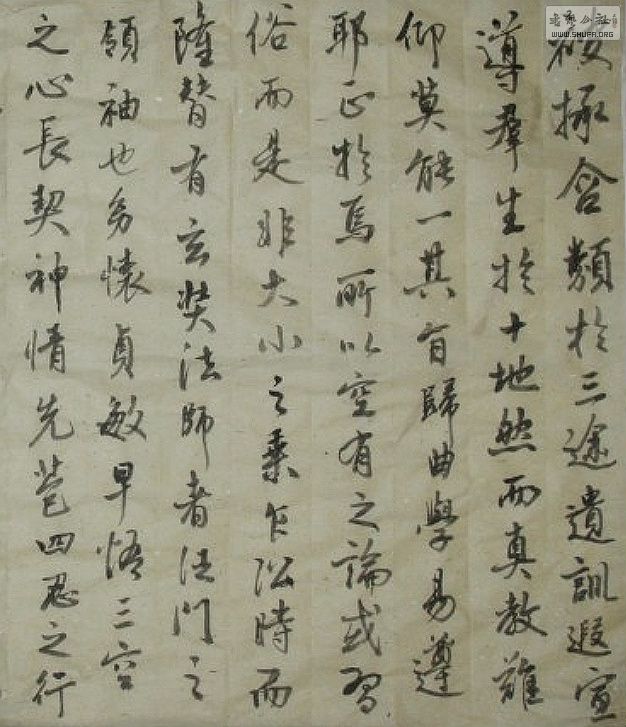 拯含類於三途遺訓遐宣
導羣生於十地然而真教難
仰莫能一其旨歸曲學易遵
耶正於焉所以空有之論或習
俗而是非大小之乘乍沿時而
隆替有玄奘法師者法門之
領袖也幼懷貞敏早悟三空
之心長契神情先苞四忍之行
WWW.SHUFA.ORG